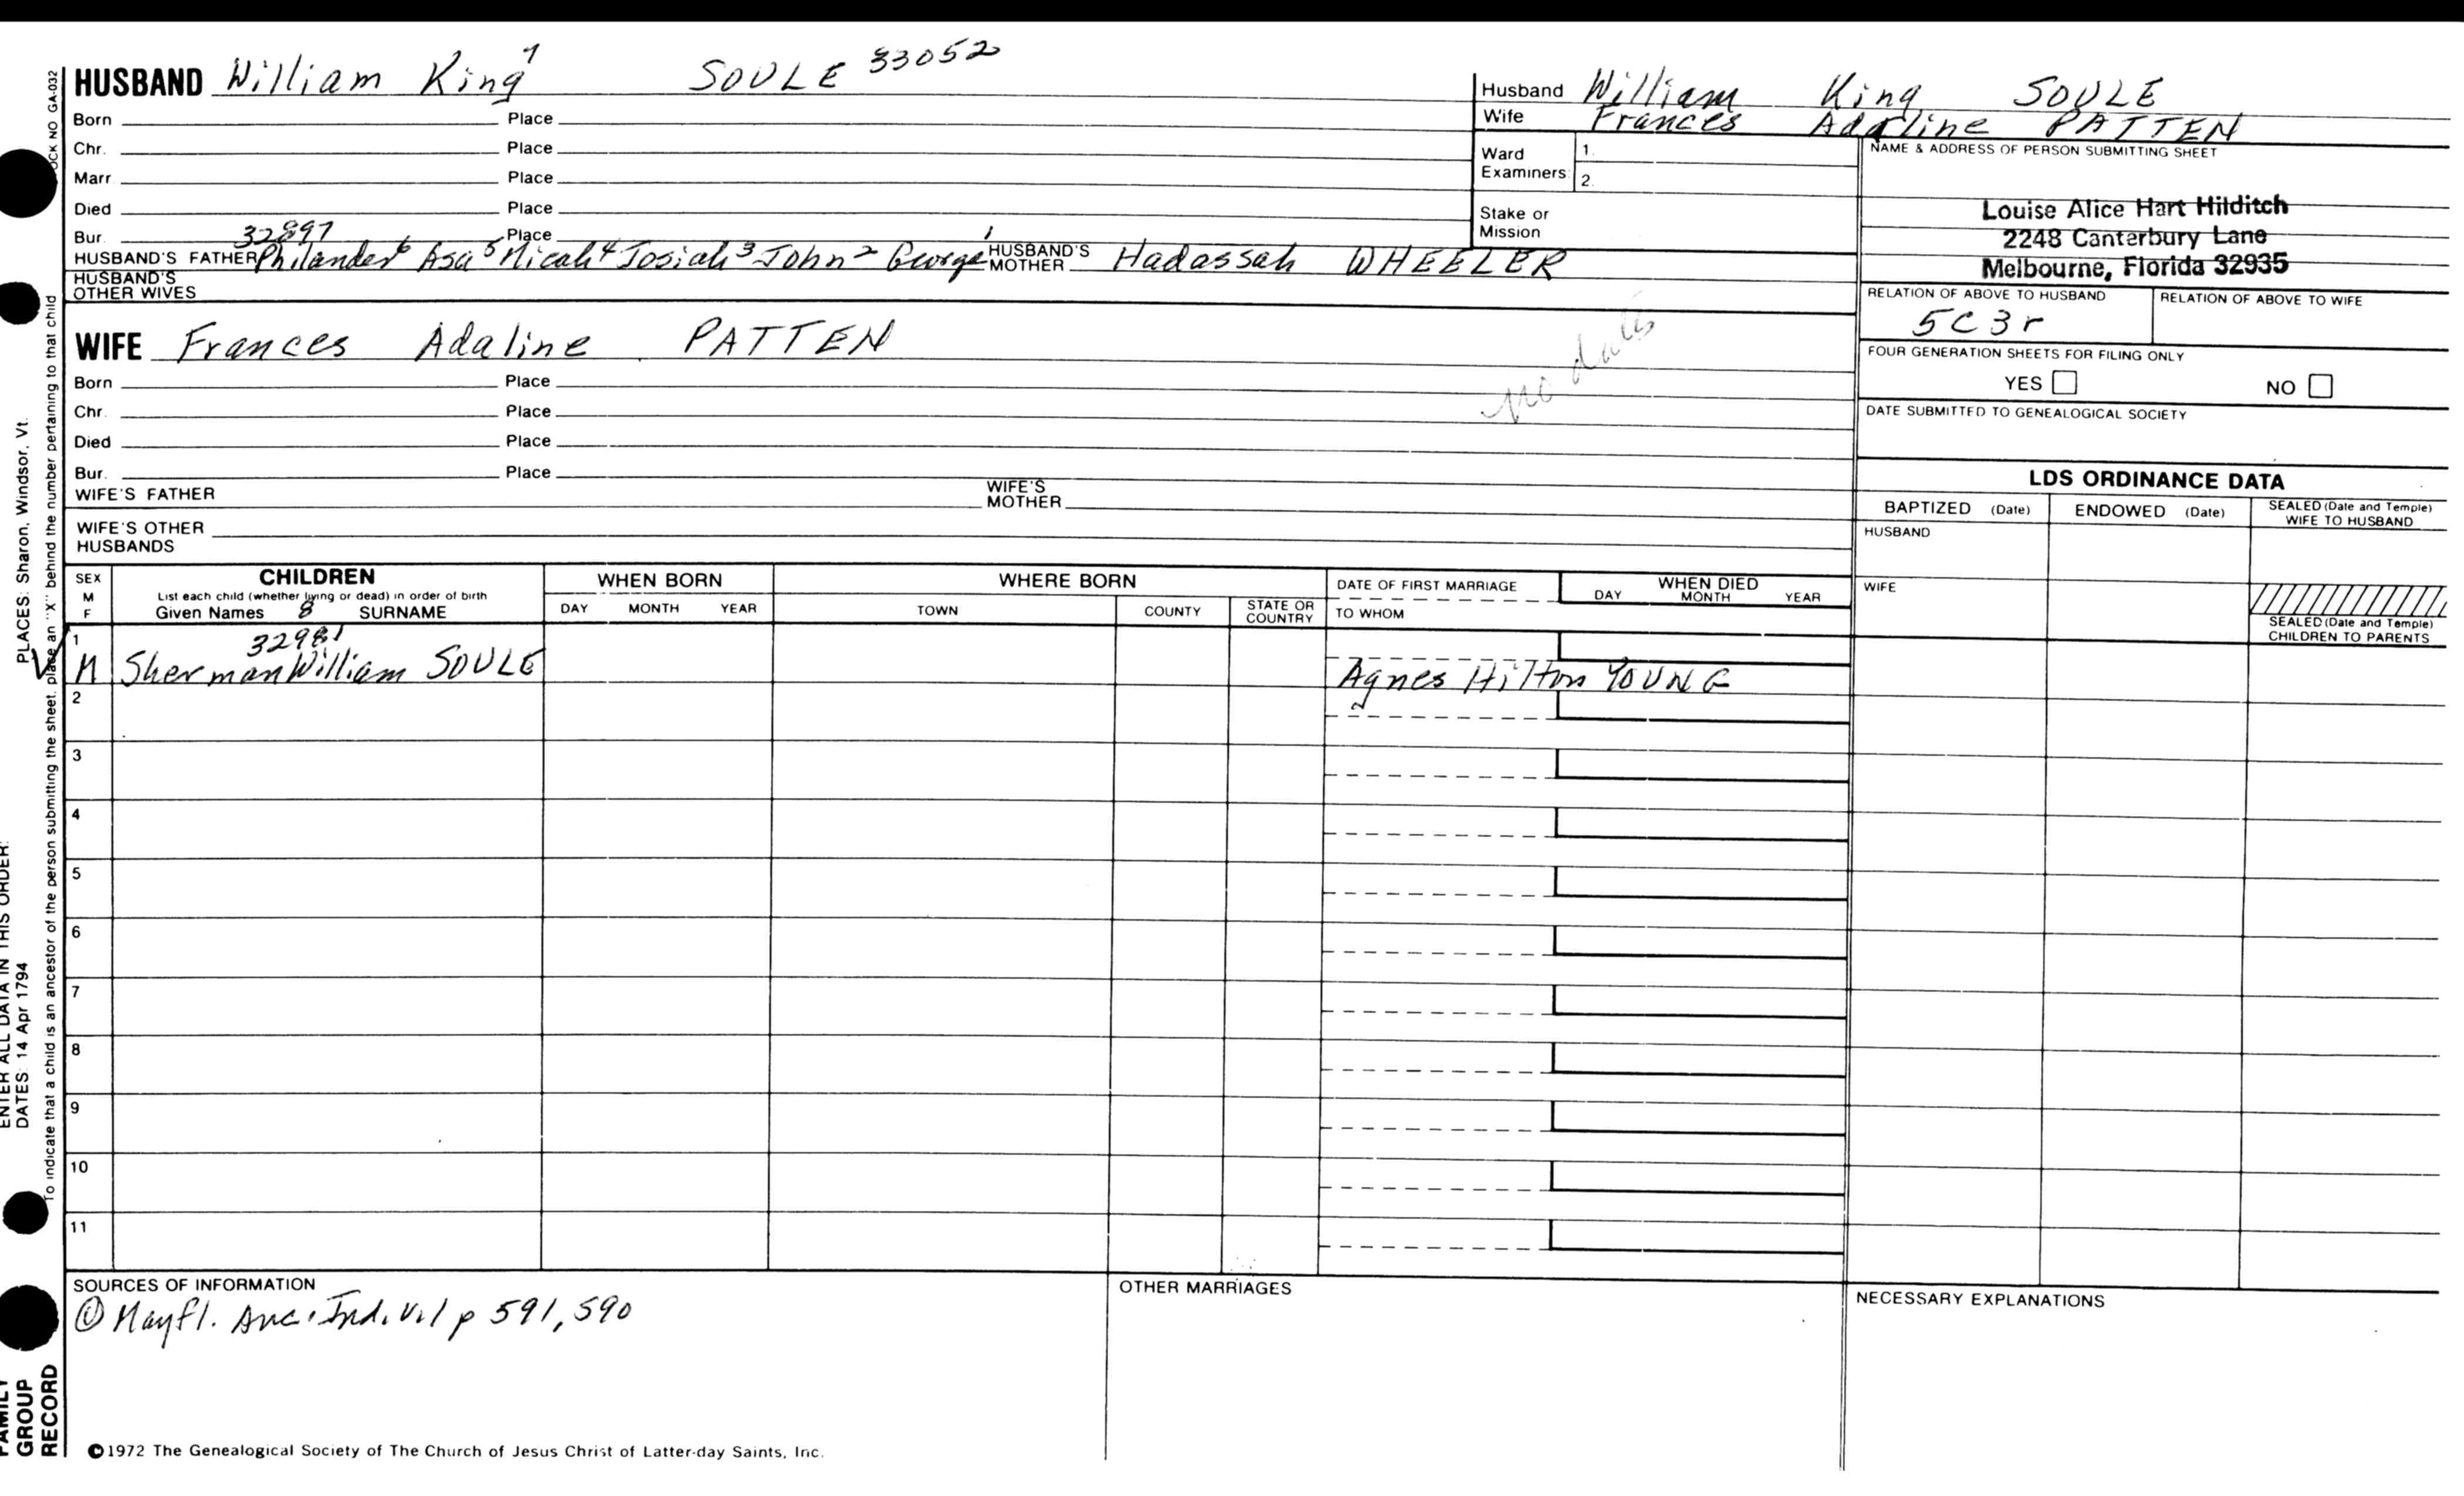 HUSBAND William King 7 SOULE 33052
Born Place
Chr. Place
Marr Place
Died Place
Bur. Place
32897
HUSBAND'S FATHER Philander 6 Asa 5 Micah 4 Josiah 3 John 2 George 1 HUSBAND'S MOTHER Hadassah WHEELER
HUSBAND'S OTHER WIVES
WIFE Frances Adaline PATTEN
no dates
Born Place
Chr. Place
Died Place
Bur. Place
WIFE'S FATHER WIFE'S MOTHER
WIFE'S OTHER HUSBANDS
Husband William King SOULE
Wife Frances Adaline PATTEN
Ward Examiners 1. 2.
Stake or Mission
NAME & ADDRESS OF PERSON SUBMITTING SHEET
Louise Alice Hart Hilditch
2248 Canterbury Lane
Melbourne, Florida 32935
RELATION OF ABOVE TO HUSBAND RELATION OF ABOVE TO WIFE
5C3r
FOUR GENERATION SHEETS FOR FILING ONLY
YES NO
DATE SUBMITTED TO GENEALOGICAL SOCIETY
LDS ORDINANCE DATA
BAPTIZED (Date) ENDOWED (Date) SEALED (Date and Temple) WIFE TO HUSBAND
HUSBAND
WIFE
SEALED (Date and Temple) CHILDREN TO PARENTS
SEX M F CHILDREN WHEN BORN WHERE BORN DATE OF FIRST MARRIAGE WHEN DIED
List each child (whether living or dead) in order of birth
Given Names 8 SURNAME DAY MONTH YEAR TOWN COUNTY STATE OR COUNTRY TO WHOM DAY MONTH YEAR
1 32981
M Sherman William SOULE Agnes Hilton YOUNG
2
3
4
5
6
7
8
9
10
11
SOURCES OF INFORMATION
① Mayfl. Anc. Ind. Vol p 591, 590
OTHER MARRIAGES
NECESSARY EXPLANATIONS
©1972 The Genealogical Society of The Church of Jesus Christ of Latter-day Saints, Inc.
OCK NO GA-032
To indicate that a child is an ancestor of the person submitting the sheet, place an "X" behind the number pertaining to that child
ENTER ALL DATA IN THIS ORDER:
DATES: 14 Apr 1794 PLACES: Sharon, Windsor, Vt.
FAMILY GROUP RECORD